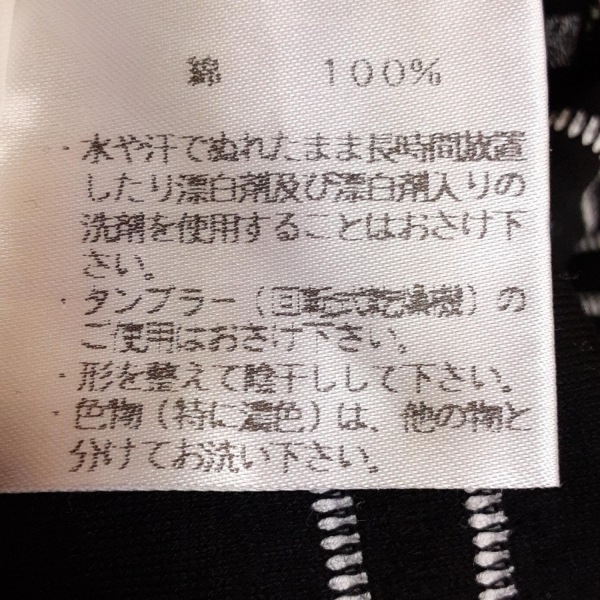 綿 100%
・水や汗でぬれたまま長時間放置
したり漂白剤及び漂白剤入りの
洗剤を使用することはおさけ下
さい。
・タンブラー(回転式乾燥機)の
ご使用はおさけ下さい。
・形を整えて陰干しして下さい。
・色物(特に濃色)は、他の物と
分けてお洗い下さい。